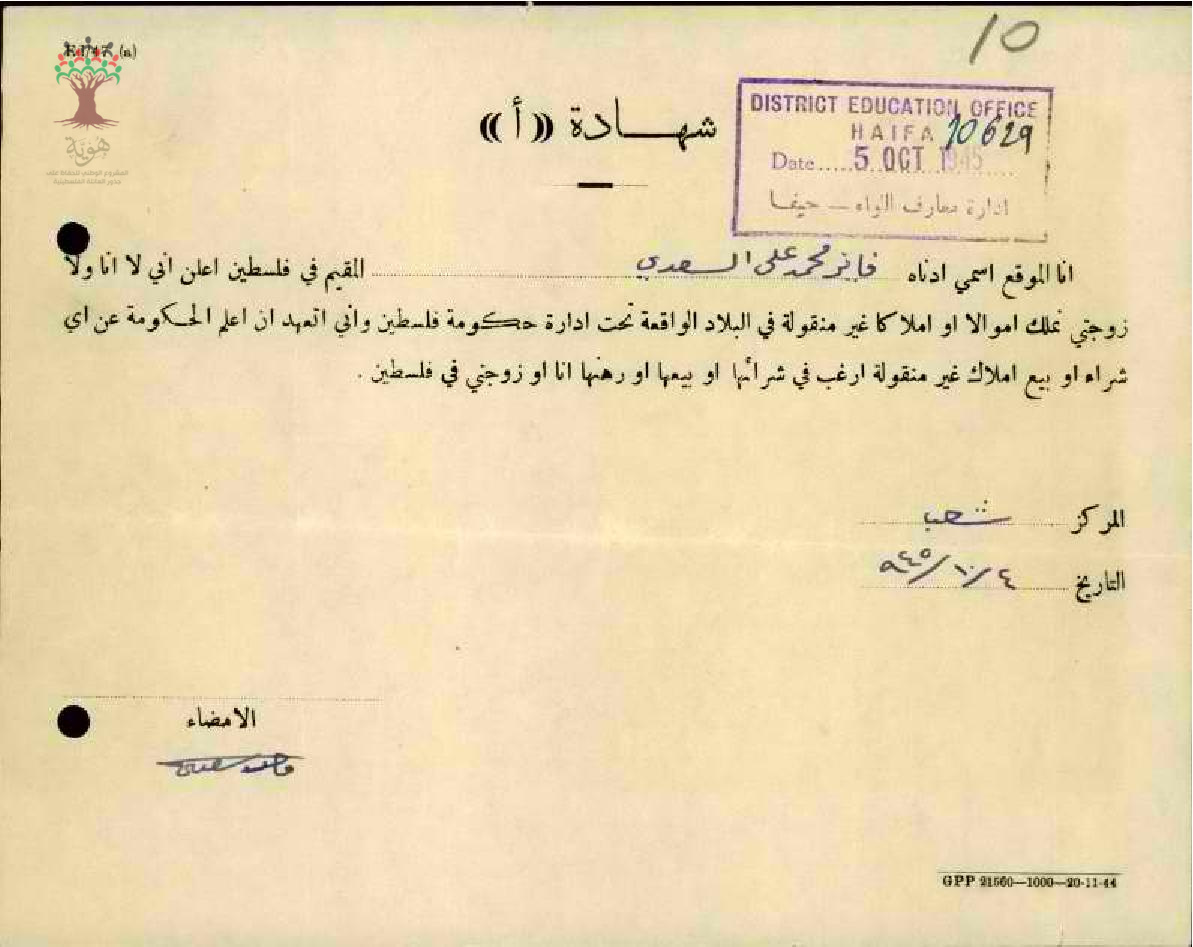 10
(a)
هوية
المشروع الوطني للحفاظ على
جذور العائلة الفلسطينية
DISTRICT EDUCATION OFFICE
HAIFA 10629
Date.....5 OCT 1945
ادارة معارف اللواء — حيفا
شهـــادة ((أ))
انا الموقع اسمي ادناه فايز محمد علي السعدي المقيم في فلسطين اعلن اني لا انا ولا
زوجتي نملك اموالا او املاكا غير منقولة في البلاد الواقعة تحت ادارة حكومة فلسطين واني اتعهد ان اعلم الحكومة عن اي
شراء او بيع املاك غير منقولة ارغب في شرائها او بيعها او رهنها انا او زوجتي في فلسطين .
المركز شعب
التاريخ ٤/١٠/٩٤٥
الامضاء
GPP 21560—1000—20-11-44